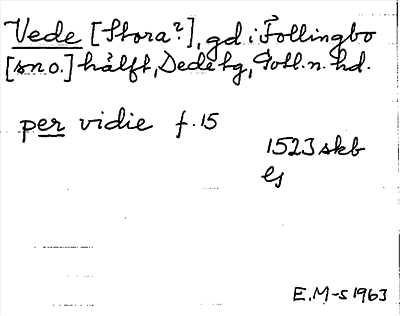 Vede [Stora?], gd i Follingbo
[sn o.] hälft, Dede tg, Gotl. n. hd.
per vidie f. 15
1523 skb
E.M-s 1963